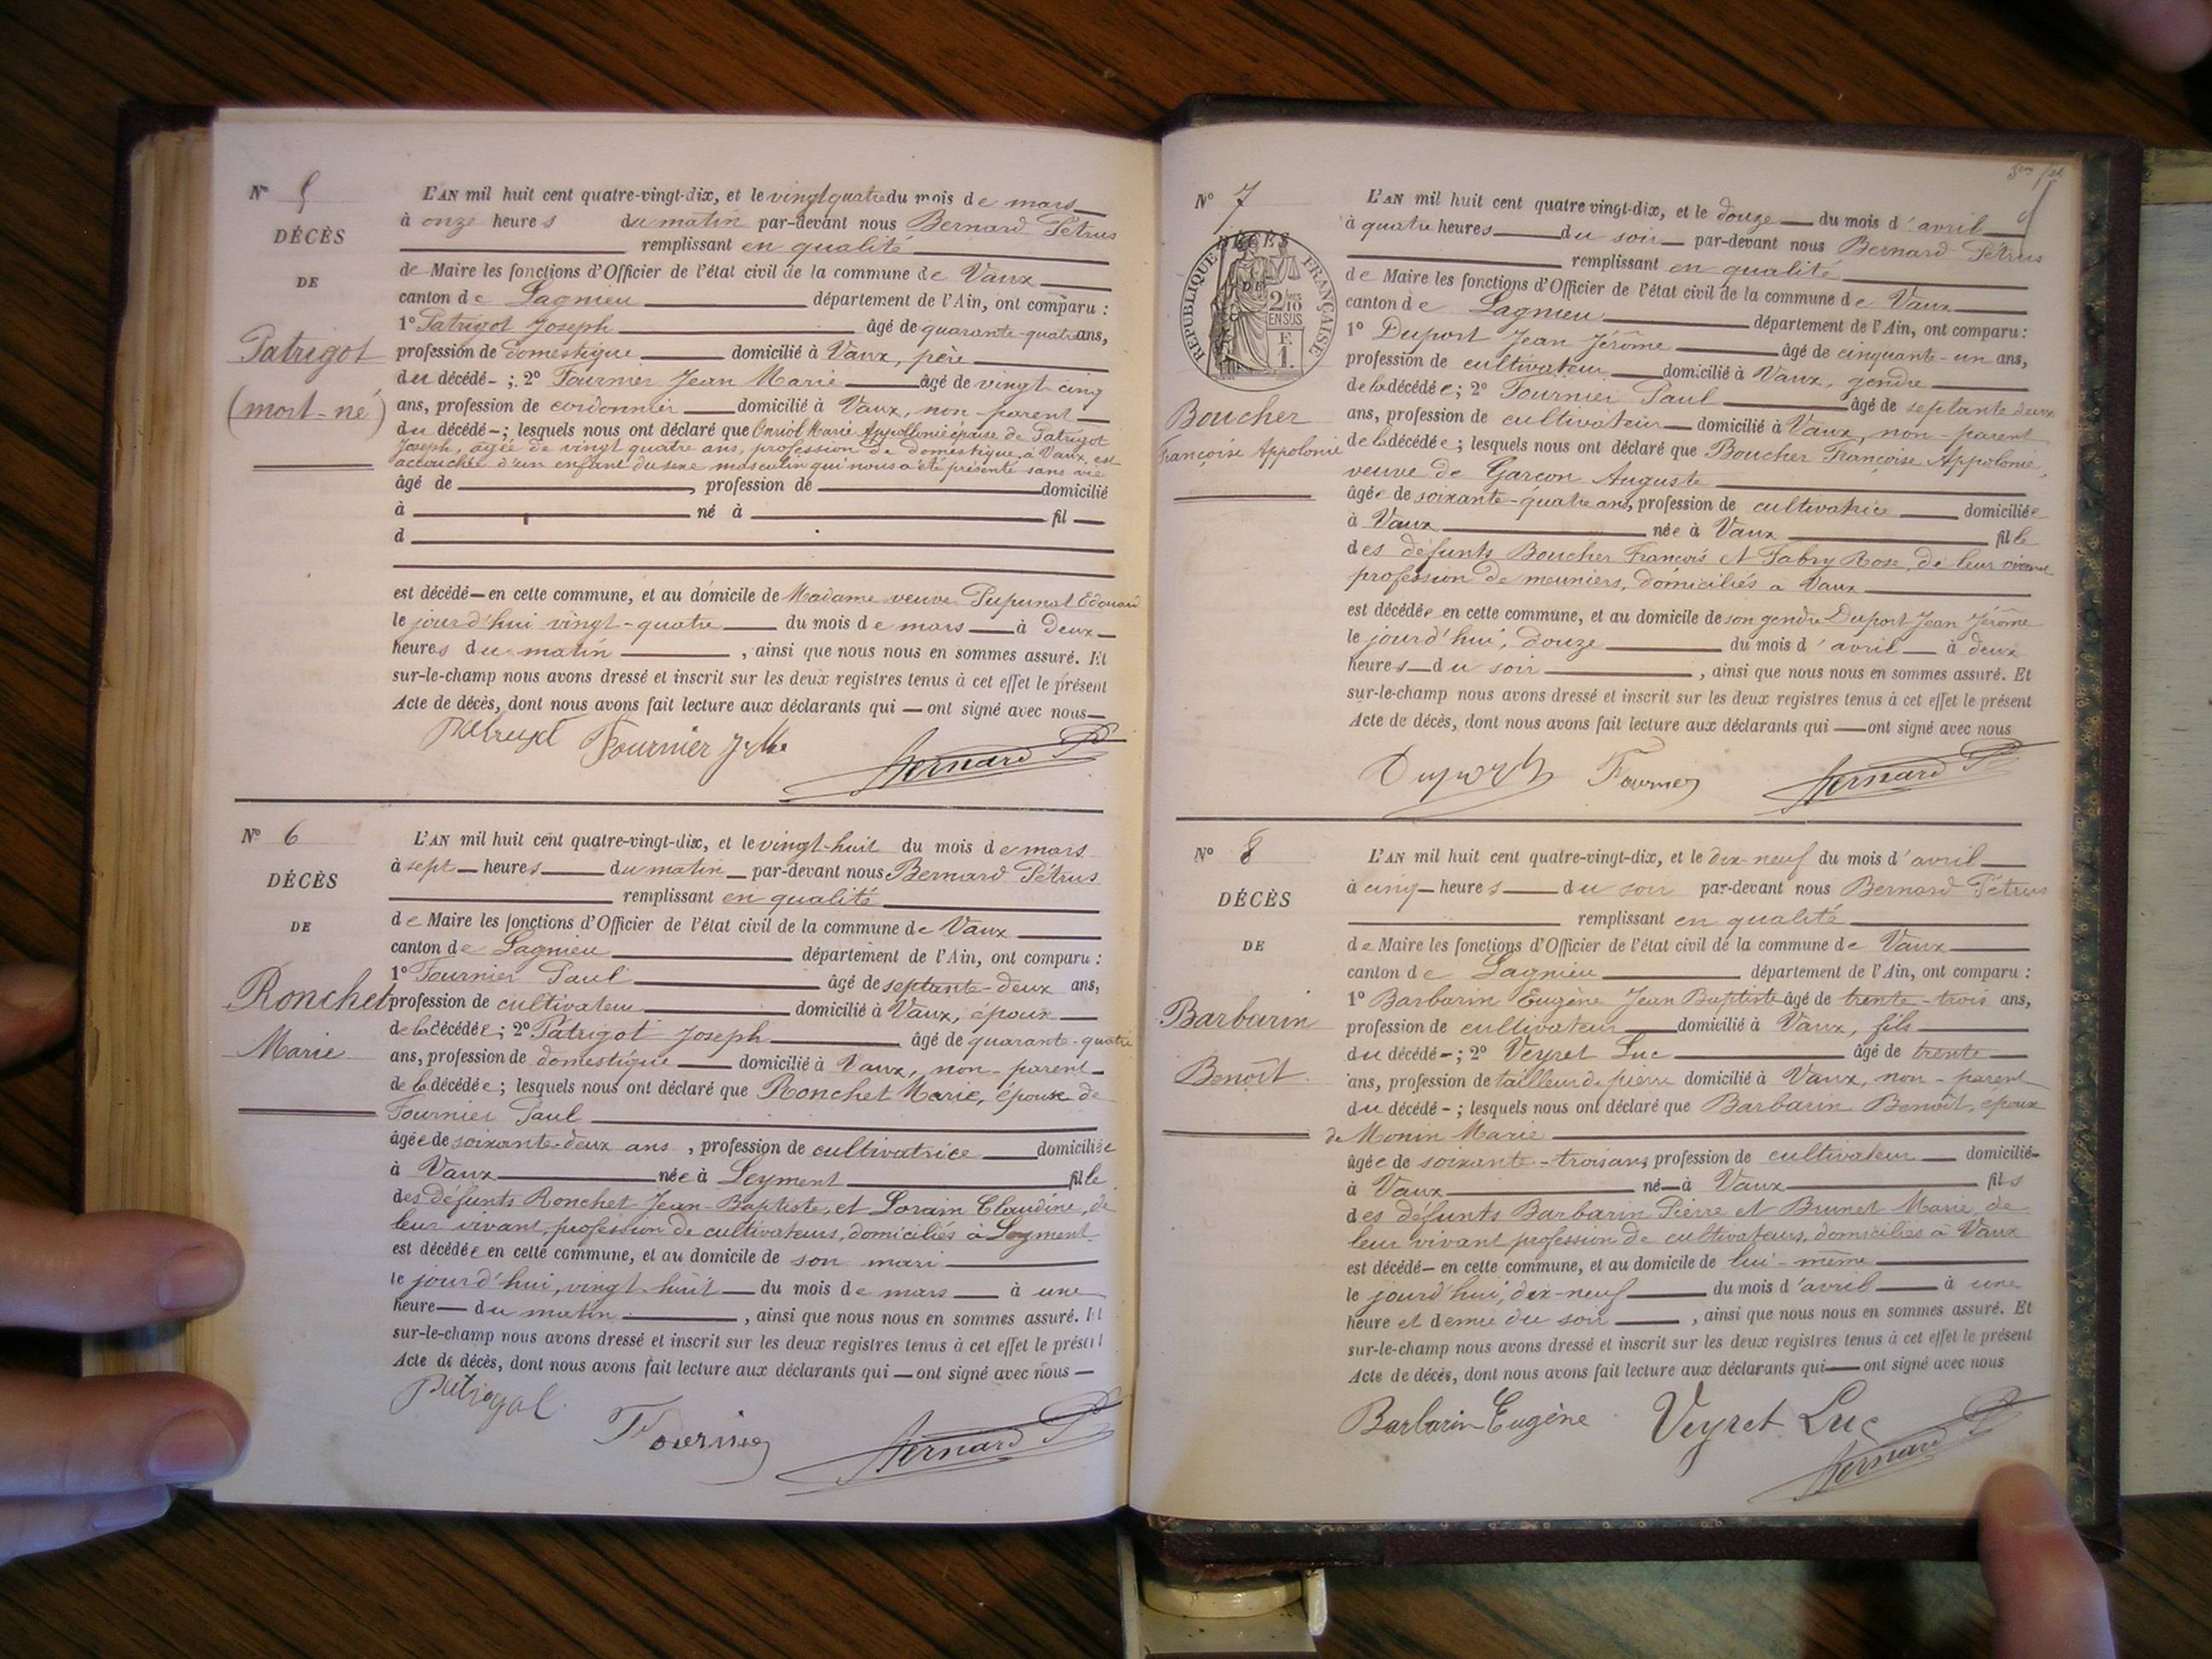 N° 5
DÉCÈS
DE
Patrigot
(mort-né)
L'AN mil huit cent quatre-vingt-dix, et le vingt quatre du mois de mars
à onze heures du matin par-devant nous Bernard Pétrus
remplissant en qualité
de Maire les fonctions d'Officier de l'état civil de la commune de Vaux
canton de Lagnieu département de l'Ain, ont comparu :
1° Patrigot Joseph âgé de quarante-quatre ans,
profession de domestique domicilié à Vaux, père
du décédé ; 2° Fournier Jean Marie âgé de vingt cinq
ans, profession de cordonnier domicilié à Vaux, non-parent
du décédé ; lesquels nous ont déclaré que Marie Appollonie épouse de Patrigot
Joseph, agée de vingt quatre ans, profession de domestique à Vaux, est
accouchée d'un enfant du sexe masculin qui nous a été présenté sans vie
âgé de , profession de domicilié
à né à fil
d
est décédé en cette commune, et au domicile de Madame veuve Pupunat Edouard
le jourd'hui vingt-quatre du mois de mars à deux
heures du matin , ainsi que nous nous en sommes assuré. Et
sur-le-champ nous avons dressé et inscrit sur les deux registres tenus à cet effet le présent
Acte de décès, dont nous avons fait lecture aux déclarants qui ont signé avec nous
Fournier J M
Bernard P
N° 6
DÉCÈS
DE
Ronchet
Marie
L'AN mil huit cent quatre-vingt-dix, et le vingt-huit du mois de mars
à sept heures du matin par-devant nous Bernard Pétrus
remplissant en qualité
de Maire les fonctions d'Officier de l'état civil de la commune de Vaux
canton de Lagnieu département de l'Ain, ont comparu :
1° Fournier Paul âgé de septante-deux ans,
profession de cultivateur domicilié à Vaux, époux
de la décédée ; 2° Patrigot Joseph âgé de quarante-quatre
ans, profession de domestique domicilié à Vaux, non-parent
de la décédée ; lesquels nous ont déclaré que Ronchet Marie, épouse de
Fournier Paul
âgée de soixante-deux ans , profession de cultivatrice domiciliée
à Vaux née à Leyment fille
des défunts Ronchet Jean-Baptiste, et Lorain Claudine, de
leur vivant, profession de cultivateurs, domiciliés à Leyment
est décédée en cette commune, et au domicile de son mari
le jourd'hui, vingt-huit du mois de mars à une
heure du matin , ainsi que nous nous en sommes assuré. Et
sur-le-champ nous avons dressé et inscrit sur les deux registres tenus à cet effet le présent
Acte de décès, dont nous avons fait lecture aux déclarants qui ont signé avec nous
Patrigot
Fournier
Bernard P
N° 7
DÉCÈS
DE
RÉPUBLIQUE FRANÇAISE
2/10
EN SUS
F.
1.
Boucher
Françoise Appolonie
L'AN mil huit cent quatre vingt-dix, et le douze du mois d'avril
à quatre heures du soir par-devant nous Bernard Pétrus
remplissant en qualité
de Maire les fonctions d'Officier de l'état civil de la commune de Vaux
canton de Lagnieu département de l'Ain, ont comparu :
1° Duport Jean Jérôme âgé de cinquante-un ans,
profession de cultivateur domicilié à Vaux, gendre
de la décédée ; 2° Fournier Paul âgé de septante deux
ans, profession de cultivateur domicilié à Vaux, non-parent
de la décédée ; lesquels nous ont déclaré que Boucher Françoise Appolonie,
veuve de Garçon Auguste
âgée de soixante-quatre ans, profession de cultivatrice domiciliée
à Vaux née à Vaux fille
des défunts Boucher François et Fabry Rose, de leur vivant
profession de meuniers, domiciliés à Vaux
est décédée en cette commune, et au domicile de son gendre Duport Jean Jérôme
le jourd'hui, douze du mois d'avril à deux
heures du soir , ainsi que nous nous en sommes assuré. Et
sur-le-champ nous avons dressé et inscrit sur les deux registres tenus à cet effet le présent
Acte de décès, dont nous avons fait lecture aux déclarants qui ont signé avec nous
Duport
Fournier
Bernard P
N° 8
DÉCÈS
DE
Barbarin
Benoît
L'AN mil huit cent quatre-vingt-dix, et le dix-neuf du mois d'avril
à cinq heures du soir par-devant nous Bernard Pétrus
remplissant en qualité
de Maire les fonctions d'Officier de l'état civil de la commune de Vaux
canton de Lagnieu département de l'Ain, ont comparu :
1° Barbarin Eugène Jean Baptiste âgé de trente-trois ans,
profession de cultivateur domicilié à Vaux, fils
du décédé ; 2° Veyret Luc âgé de trente
ans, profession de tailleur de pierre domicilié à Vaux, non-parent
du décédé ; lesquels nous ont déclaré que Barbarin Benoît, époux
de Monin Marie
âgée de soixante-trois ans, profession de cultivateur domicilié
à Vaux né à Vaux fils
des défunts Barbarin Pierre et Brunet Marie, de
leur vivant profession de cultivateurs, domiciliés à Vaux
est décédé en cette commune, et au domicile de lui-même
le jourd'hui, dix-neuf du mois d'avril à une
heure et demie du soir , ainsi que nous nous en sommes assuré. Et
sur-le-champ nous avons dressé et inscrit sur les deux registres tenus à cet effet le présent
Acte de décès, dont nous avons fait lecture aux déclarants qui ont signé avec nous
Barbarin Eugène
Veyret Luc
Bernard P